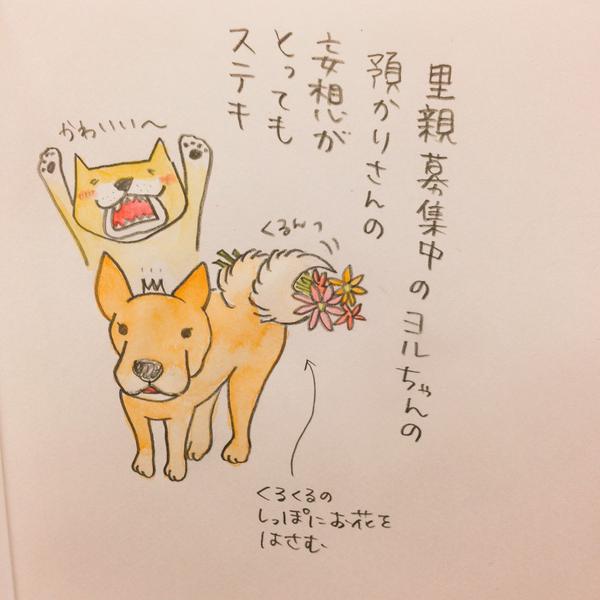 里親募集中のヨルちゃんの
預かりさんの
妄想が
とっても
ステキ
かわいい〜
くるんっ
くるくるの
しっぽにお花を
はさむ